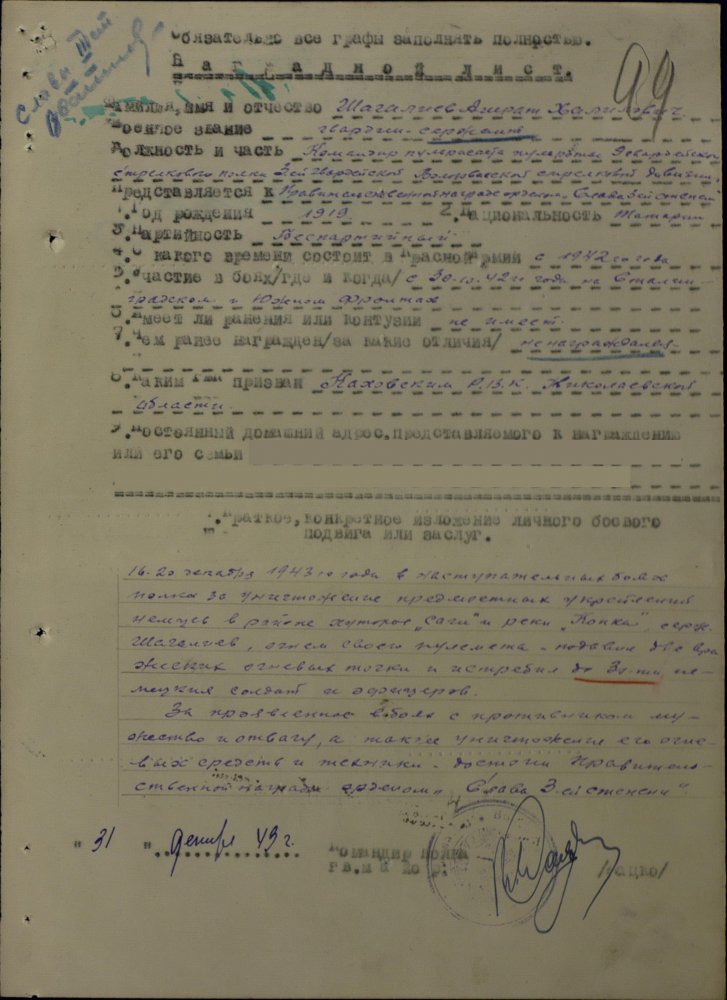 99
Слава Шей
Обязательно все графы заполнять полностью.
Наградной лист.
Фамилия, имя и отчество Шагалиев Ахрат Халилович
Военное звание гвардии-сержант
Должность и часть Командир пулеметного Гвардейского
стрелкового полка 3ей Гвардейской Волновахской стрелковой дивизии.
Представляется к Правительственной награде ордена Слава 3ей степени
1. Год рождения 1919. 2. Национальность Татарин
3. Партийность Беспартийный
4. С какого времени состоит в Красной Армии с 1942 го года
5. Участие в боях /где и когда/ с 30-го. 42 го года на Сталин-
градском и Южном фронтах
6. Имеет ли ранения или контузии не имеет.
7. Чем ранее награжден /за какие отличия/ ненаграждался-
8. Каким РВК призван Р.В.К. Николаевской
области.
9. Постоянный домашний адрес, представляемого к награждению
или его семьи
1. Краткое, конкретное изложение личного боевого
подвига или заслуг.
16-20 декабря 1943 го года в наступательных боях
полка за уничтожение предмостных укреплений
немцев в районе хуторов „Саги" и реки „Конка", серж.
Шагалиев, огнем своего пулемета - подавил две вра-
жеских огневых точки и истребил до 30-ти не-
мецких солдат и офицеров.
За проявленное в боях с противником му-
жество и отвагу, а также уничтожение его огне-
вых средств и техники - достоин Правитель-
ственной награды орденом „Слава 3-ей степени"
" 31 " декабря 43 г.
Командир полка
гв. /Кацко/